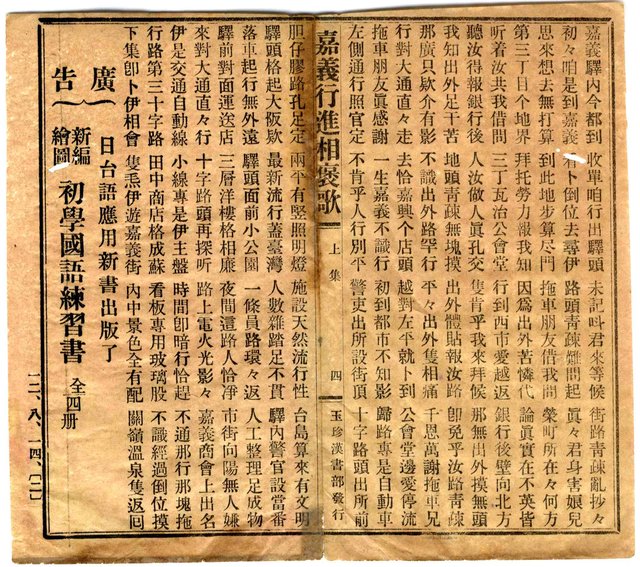 嘉義驛內今都到 收單咱行出驛頭 未記呌君來等候 街路靑疎亂抄々
初々咱是到嘉義 卜倒位去尋伊 路頭靑疎難問起 眞々君身害娘兒
思來想去無打算 到此地步算尽門 拖車朋友借我問 榮町所在々何方
第三丁目个地界 拜托勞力報我知 因為出外苦憐代 論眞實在不英皆
听着汝共我借問 三丁瓦治公會堂 行到西市愛越返 銀行後壁向北方
聽汝得報銀行後 人汝做人眞孔交 隻肯乎我來拜候 那無出外摸無頭
我知出外足干苦 地頭靑疎無塊摸 出外體貼報汝路 卽免乎汝路靑疎
那廣只欵介有影 不識出外路罕行 平々出外隻相痛 千恩萬謝拖車兄
行對大通直々走 去恰嘉興个店頭 越對左平就卜到 公會堂邊愛停流
拖車朋友眞感謝 一生嘉義不識行 初到都市不知影 歸路專是自動車
左側通行照官定 不肯乎人行別平 警吏出所設街頂 十字路頭出所前
嘉義行進相褒歌 上集 四 玉珍漢書部發行
胆仔膠路孔足定 兩平有竪照明燈 施設天然流行性 台島算來有文明
驛頭格起大阪欵 最新流行蓋臺灣 人數雜踏足不貫 驛內警官設當番
落車起行無外遠 驛頭面前小公園 一條員路環々返 人工整理足成物
驛前對面運送店 三層洋樓格相廉 夜間這路人恰淨 市街向陽無人嫌
來對大通直々行 十字路頭再探听 路上電火光影々 嘉義商會上出名
伊是交通自動線 小線專是伊主盤 時間卽暗行恰趕 不通那行那塊拖
行路第三十字路 田中商店格成蘇 看板專用玻璃股 不識經過倒位摸
下集卽卜伊相會 隻炁伊遊嘉義街 內中景色全有配 關嶺溫泉隻返囘
廣告
日台語應用新書出版了
新編繪圖 初學國語練習書 全四册